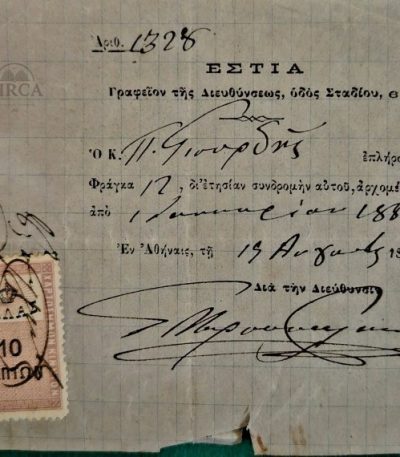 IRCA
Ἀριθ. 1328
ΕΣΤΙΑ
Γραφεῖον τῆς Διευθύνσεως, ὁδὸς Σταδίου, 6
Ὁ Κ. Π. ἐπλήρω
Φράγκα 12, δι' ἐτησίαν συνδρομὴν αὐτοῦ, ἀρχομέ
ἀπὸ 1 Ἰανουαρίου 188
Ἐν Ἀθήναις, τῇ 19
Διὰ τὴν Διεύθυνσιν
ΛΛΑ
10